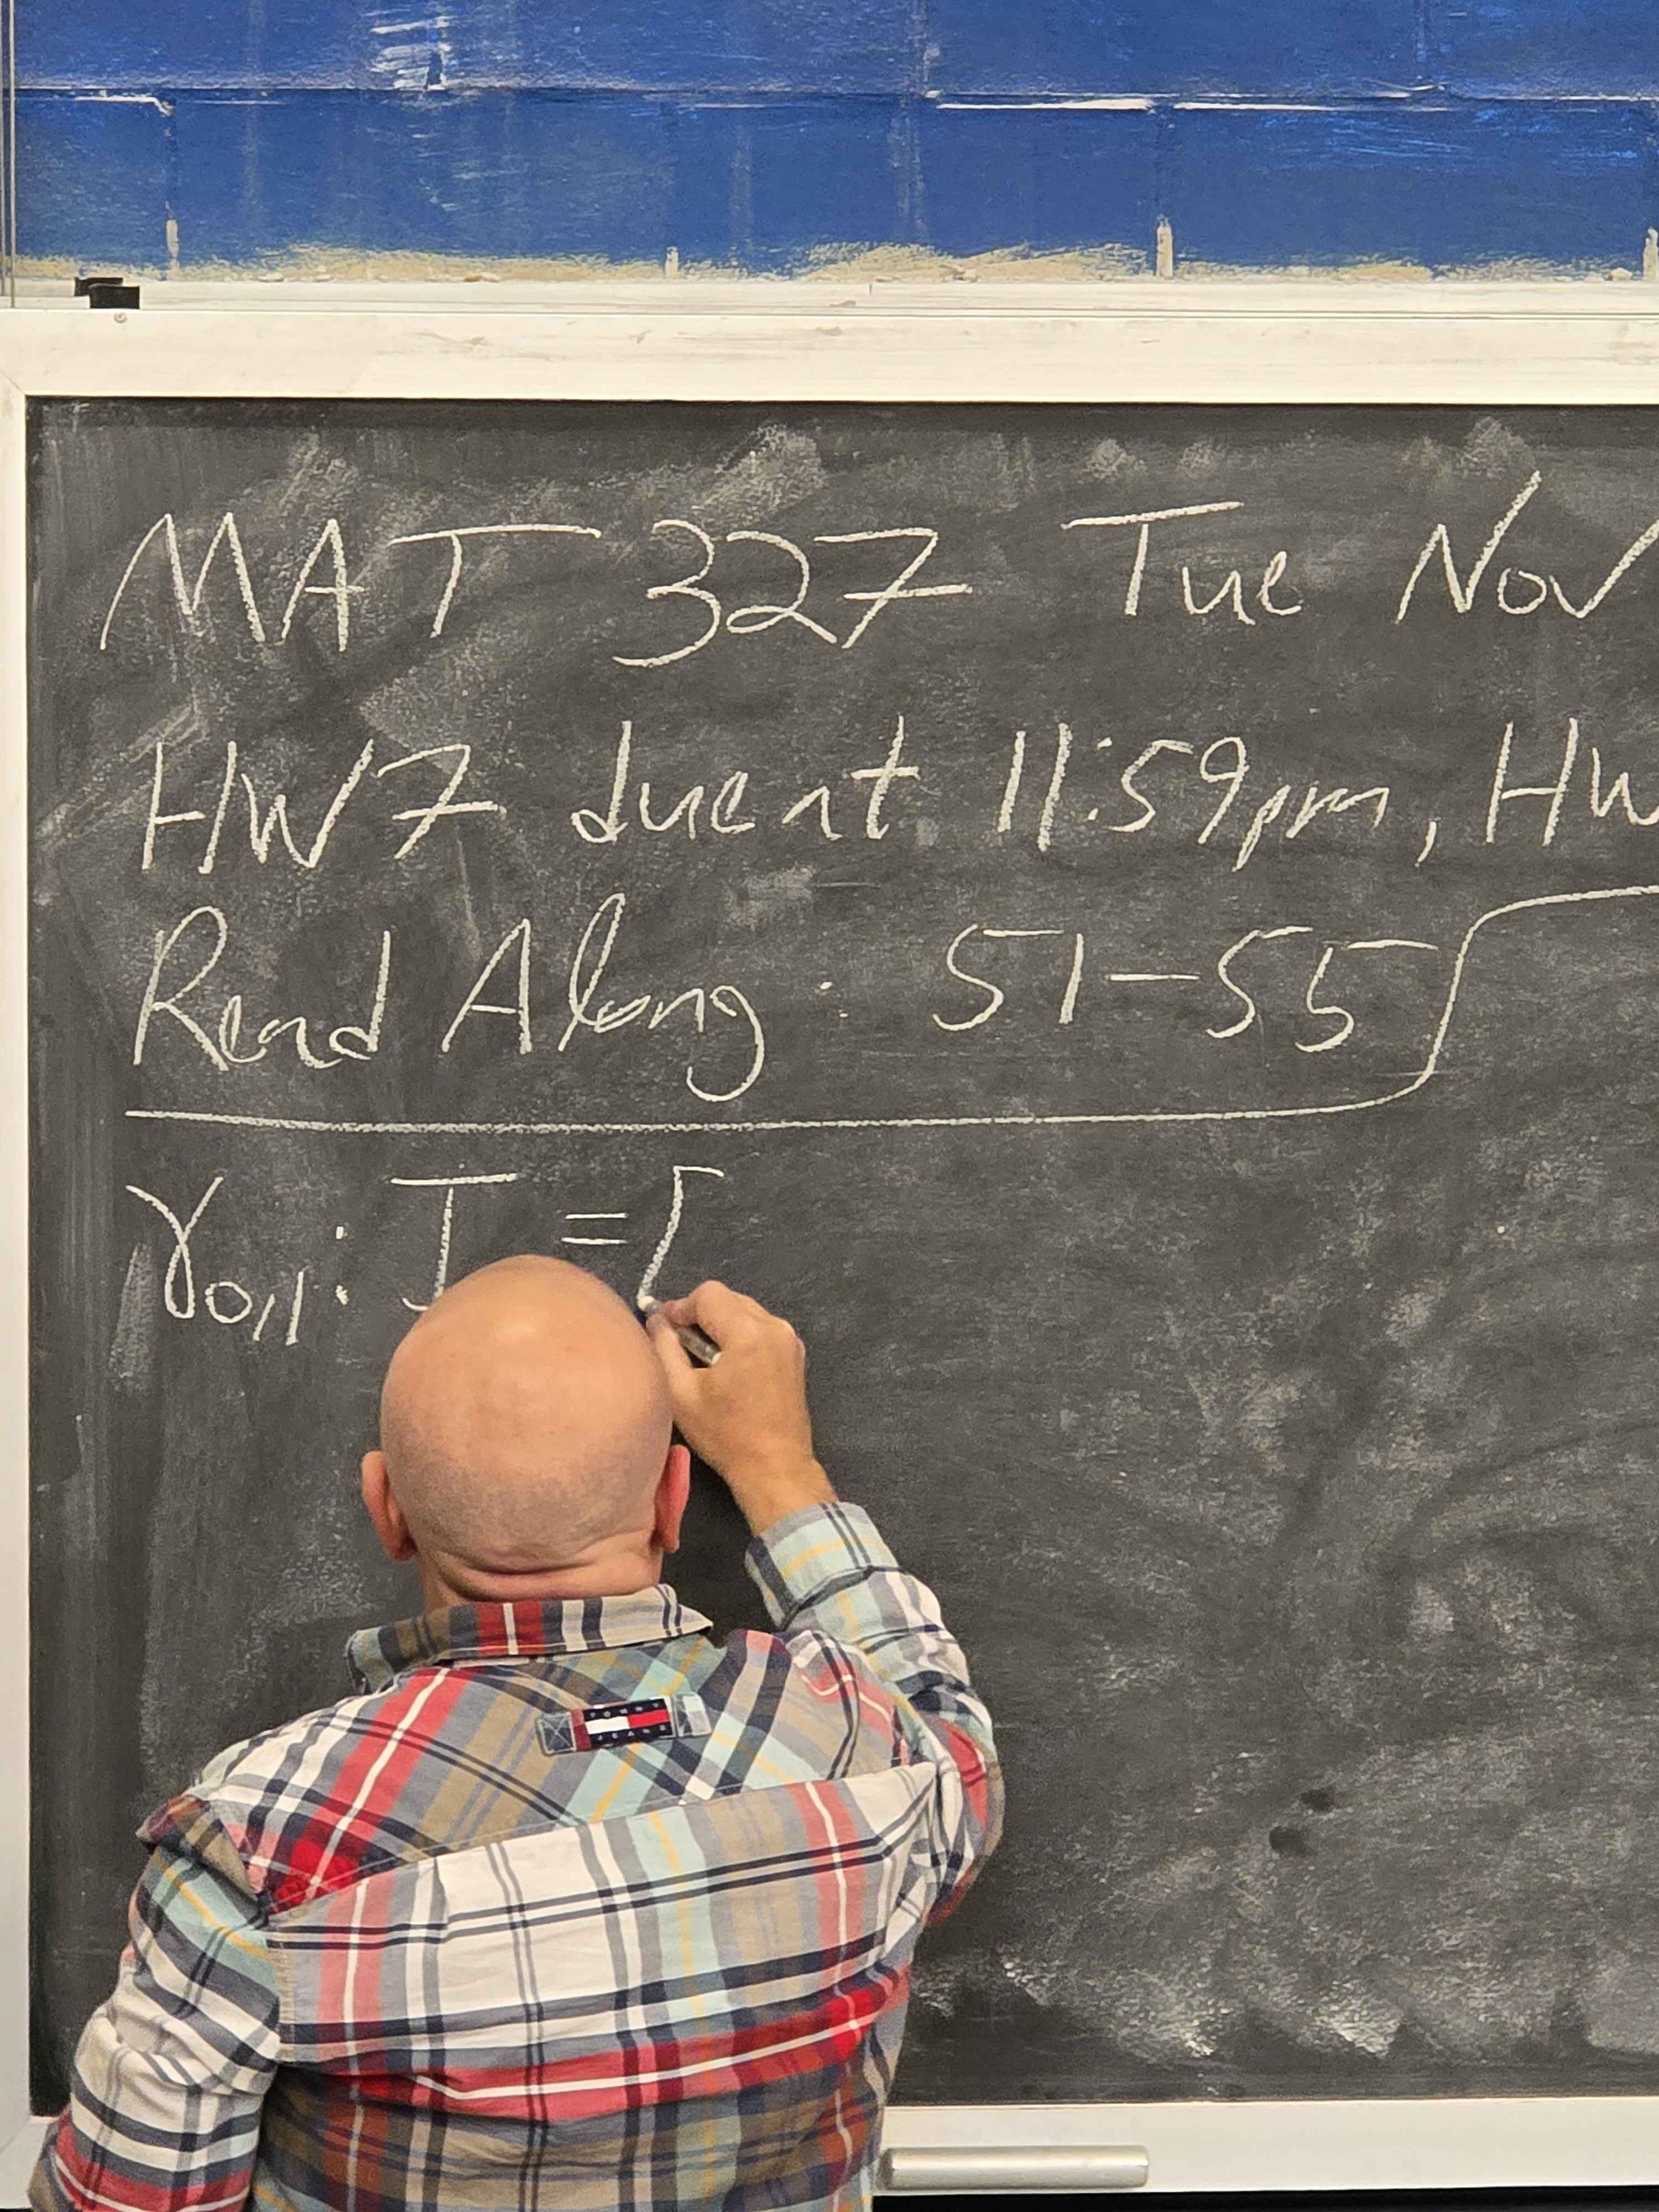 MAT 327 Tue Nov
HW7 due at 11:59pm, HW
Read Along: 51-55
γ0,1: I = [
TOMMY
JEANS